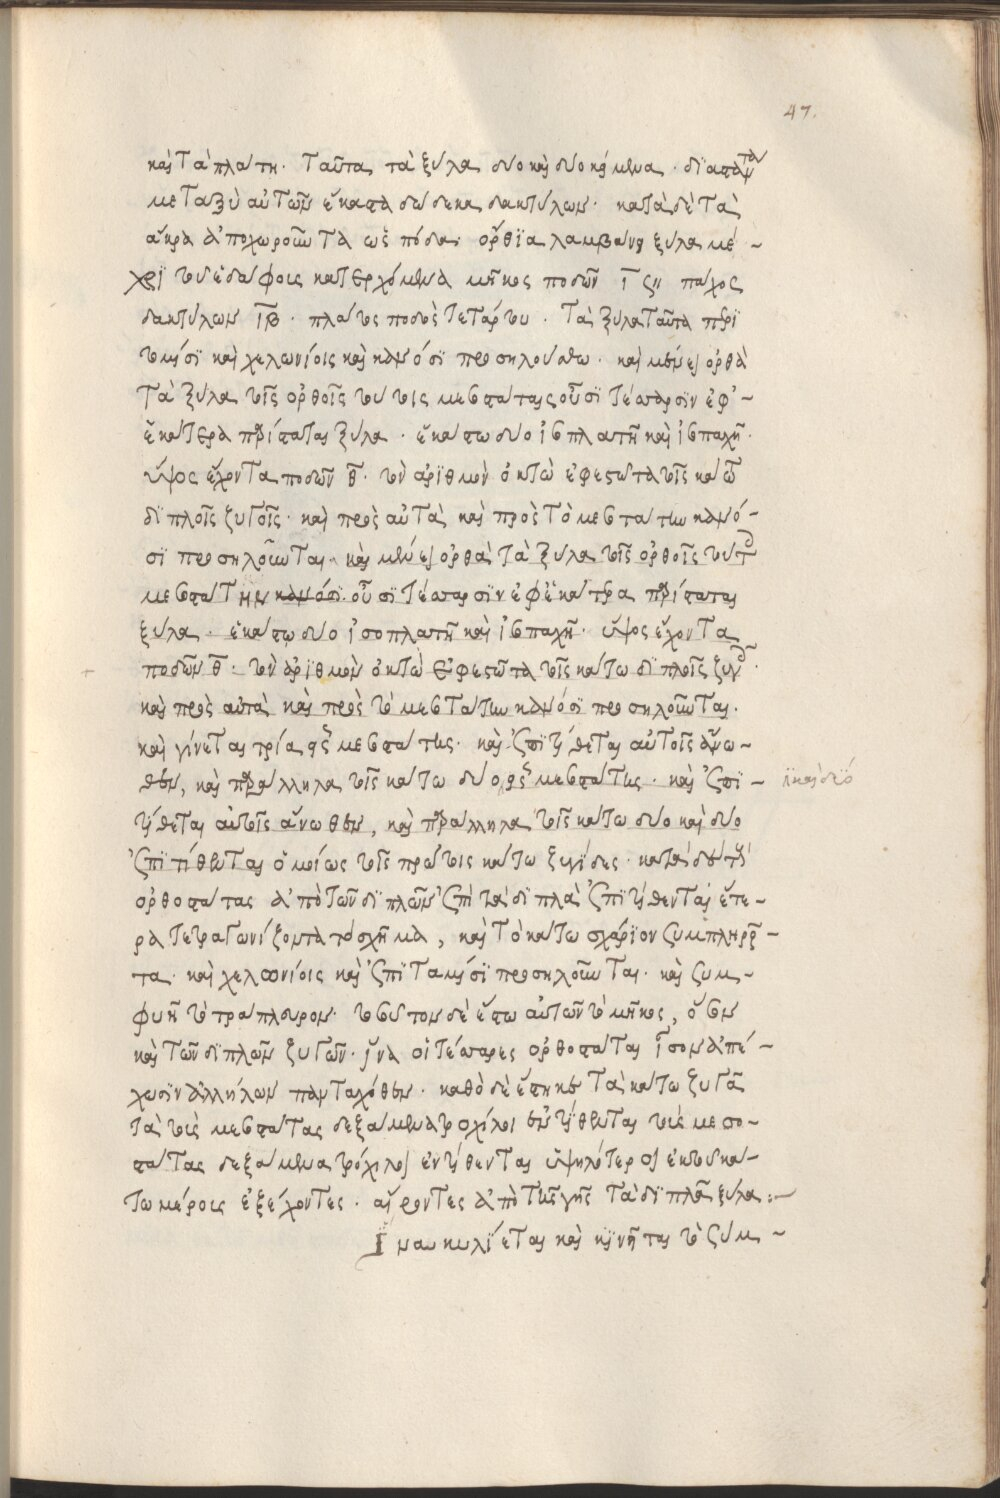 47.
καὶ τὰ πλάτη. ταῦτα τὰ ξύλα δύο καὶ δύο κείμενα. διαστάντα
μεταξὺ αὐτῶν ἕκαστα δώδεκα δακτύλων. κατὰ δὲ τὰ
ἄκρα ἀποχωροῦντα ὡς πόδα· ὄρθια λαμβάνει ξύλα μέ-
χρι τοῦ ἐδάφους κατερχόμενα μῆκος ποδῶν ῑ ϛ// πάχος
δακτύλων ῑβ̄. πλάτος ποδὸς τετάρτου. τὰ ξύλα ταῦτα περι
τομίσι καὶ χελωνίοις καὶ κανόσι προσηλούσθω. καὶ μένει ὀρθὰ
τὰ ξύλα τοῖς ὀρθοῖς τούτοις μεσοστάταις οὖσι τέσσαρσιν ἐφ'-
ἑκάτερα παρίσταται ξύλα. ἑκάστω δύο ἰσοπλατῆ καὶ ἰσοπαχῆ.
ὕψος ἔχοντα ποδῶν θ̄. τὸν ἀριθμὸν ὀκτὼ ἐφεστῶτα τοῖς κάτω
διπλοῖς ζυγοῖς. καὶ πρὸς αὐτὰ καὶ πρὸς τὸ μεσοστάτην κανό-
σι προσηλοῦνται. καὶ μένει ὀρθὰ τὰ ξύλα τοῖς ὀρθοῖς τούτοις
μεσοστάτην κανόσι. οὖσι τέσσαρσιν ἐφ' ἑκάτερα παρίσταται
ξύλα. ἑκάστω δύο ἰσοπλατῆ καὶ ἰσοπαχῆ. ὕψος ἔχοντα
ποδῶν θ̄. τὸν ἀριθμὸν ὀκτὼ ἐφεστῶτα τοῖς κάτω διπλοῖς ζυγοῖς.
καὶ πρὸς αὐτὰ καὶ πρὸς τὸ μεσοστάτην κανόσι προσηλοῦνται.
καὶ γίνεται τρία μεσοστάτης. καὶ ἐπιτίθεται αὐτοῖς ἄνω-
θεν, καὶ παράλληλα τοῖς κάτω δύο, μεσοστάτης. καὶ ἐπι-
ἢ καὶ δύο
τίθεται αὐτοῖς ἄνωθεν, καὶ παράλληλα τοῖς κάτω δύο καὶ δύο
ἐπιτίθενται ὁμοίως τοῖς πρώτοις κάτω ξυγίδες. κατὰ δὲ τοὺς
ὀρθοστάτας ἀπὸ τῶν διπλῶν ἐπὶ τὰ διπλὰ ἐπιτίθενται ἕτε-
ρα τετραγωνίζοντα τὸ σχῆμα, καὶ τὸ κάτω σχάριον συμπληροῦ-
ται. καὶ χελωνίοις καὶ ἐπιταμίσι προσηλοῦνται. καὶ συμ-
φυῆ τὸ τράπλευρον. τοσοῦτον δὲ ἔστω αὐτῶν τὸ μῆκος, ὅσον
καὶ τῶν διπλῶν ζυγῶν. ἵνα οἱ τέσσαρες ὀρθοστάται ἴσον ἀπέ-
χωσιν ἀλλήλων πανταχόθεν. καθὸ δὲ ἕστηκε τὰ κάτω ζυγὰ
τὰ τοὺς μεσοστάτας δεξάμενα τροχίλοι ἐντίθενται τοὺς μεσο-
στάτας δεξάμενα τρόχιλοι ἐντίθενται ὑψηλότεροι ἐκ τοῦ κά-
τω μέρους ἐξέχοντες. αἴροντες ἀπὸ τῆς γῆς τὰ διπλᾶ ξύλα:-
ἵνα κωλίεται καὶ κινῆται τὸ σύμ-